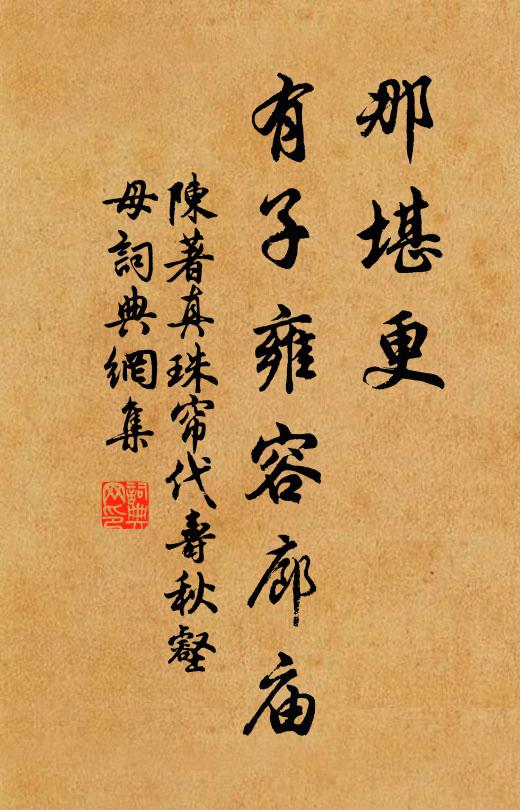 那堪更
有子雍容廊庙
陳著真珠帘代壽秋壑
母詞典網集
詞典网印